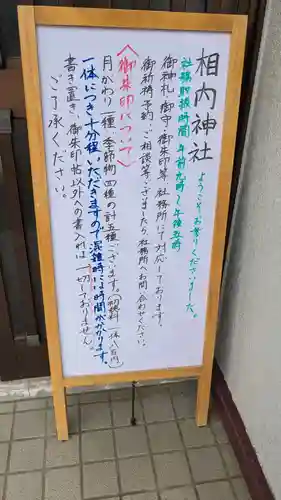 相内神社
ようこそお参りくださいました。
社務取扱時間 午前九時～午後五時
御神札、御守、御朱印等 社務所にて対応しております。
御祈祷予約、ご相談等ございましたら、社務所へお問い合わせください。
〈御朱印について〉
月かわり一種、季節物四種の計五種ございます。(初穂料 一体 八百円)
一体につき十分程いただきますので、混雑時には時間がかかります。
書き置き、御朱印帖以外への書入れは一切しておりません。
ご了承ください。